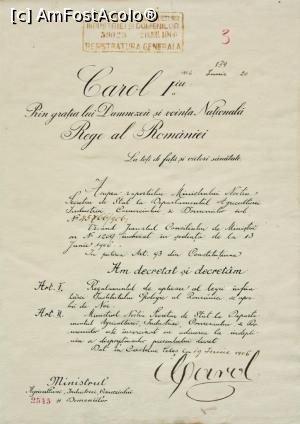 [c] AmFostAcolo®
REGISTRATURA GENERALA
3
Iunie 20
Carol I
Prin grația lui Dumnezeu și voința Națională
Rege al României
La toți de față și viitori sănătate.
Asupra raportului Ministrului Nostru
Secretar de Stat la Departamentul Agriculturei
Industriei, Comerciului și Domeniilor sub
No
Văzând Jurnalul Consiliului de Miniștri
cu No 1209 în ședința de la 13
Iunie 1906
In puterea Art. 93 din Constituțiune
Am decretat și decretăm
Art. I. Regulamentul de aplicare al legei
Institutului Geologic al României
de Noi.
Art. II. Ministrul Nostru Secretar de Stat la Departa-
mentul Agriculturei, Industriei, Comerciului și Do-
meniilor este însărcinat cu aducerea la îndepli-
nire a dispozițiunilor prezentului decret
Dat în Castelul Peleș la 19 Iunie 1906
Carol
Ministrul
Agriculturei, Industriei, Comerciului
și Domeniilor
2545